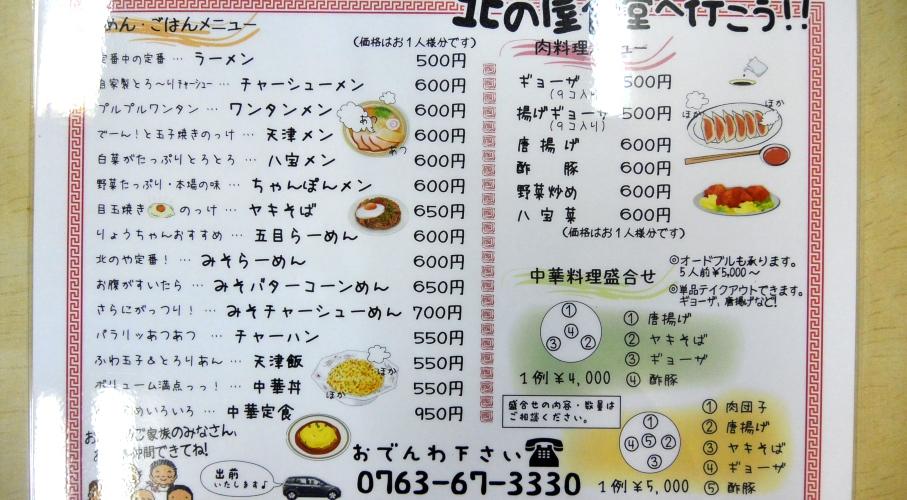 北の屋食堂へ行こう!!
めん・ごはんメニュー
(価格はお1人様分です)
定番中の定番 … ラーメン 500円
自家製とろ〜りチャーシュー … チャーシューメン 600円
プルプルワンタン … ワンタンメン 600円
でーん!と玉子焼きのっけ … 天津メン 600円
白菜がたっぷりとろとろ … 八宝メン 600円
野菜たっぷり・本場の味 … ちゃんぽんメン 600円
目玉焼き のっけ … ヤキそば 650円
りょうちゃんおすすめ … 五目らーめん 600円
北のや定番! … みそらーめん 600円
お腹がすいたら … みそバターコーンめん 650円
さらにがっつり! … みそチャーシューめん 700円
パラリッあつあつ … チャーハン 550円
ふわ玉子&とろりあん … 天津飯 550円
ボリューム満点っっ! … 中華丼 550円
めいろいろ … 中華定食 950円
あつ
あつ
ほか
ほか
ご家族のみなさん、
仲間できてね!
出前
いたします♪
おでんわ下さい
0763-67-3330
肉料理メニュー
ギョーザ 500円
(9コ入り)
揚げギョーザ 500円
(9コ入り)
唐揚げ 600円
酢豚 600円
野菜炒め 600円
八宝菜 600円
(価格はお1人様分です)
ほか
ほか
◎オードブルも承ります。
5人前¥5,000〜
◎単品テイクアウトできます。
ギョーザ、唐揚げなど!
中華料理盛合せ
① ④ ③ ②
1例¥4,000
① 唐揚げ
② ヤキそば
③ ギョーザ
④ 酢豚
盛合せの内容・数量は
ご相談ください。
① ④ ⑤ ② ③
1例¥5,000
① 肉団子
② 唐揚げ
③ ヤキそば
④ ギョーザ
⑤ 酢豚